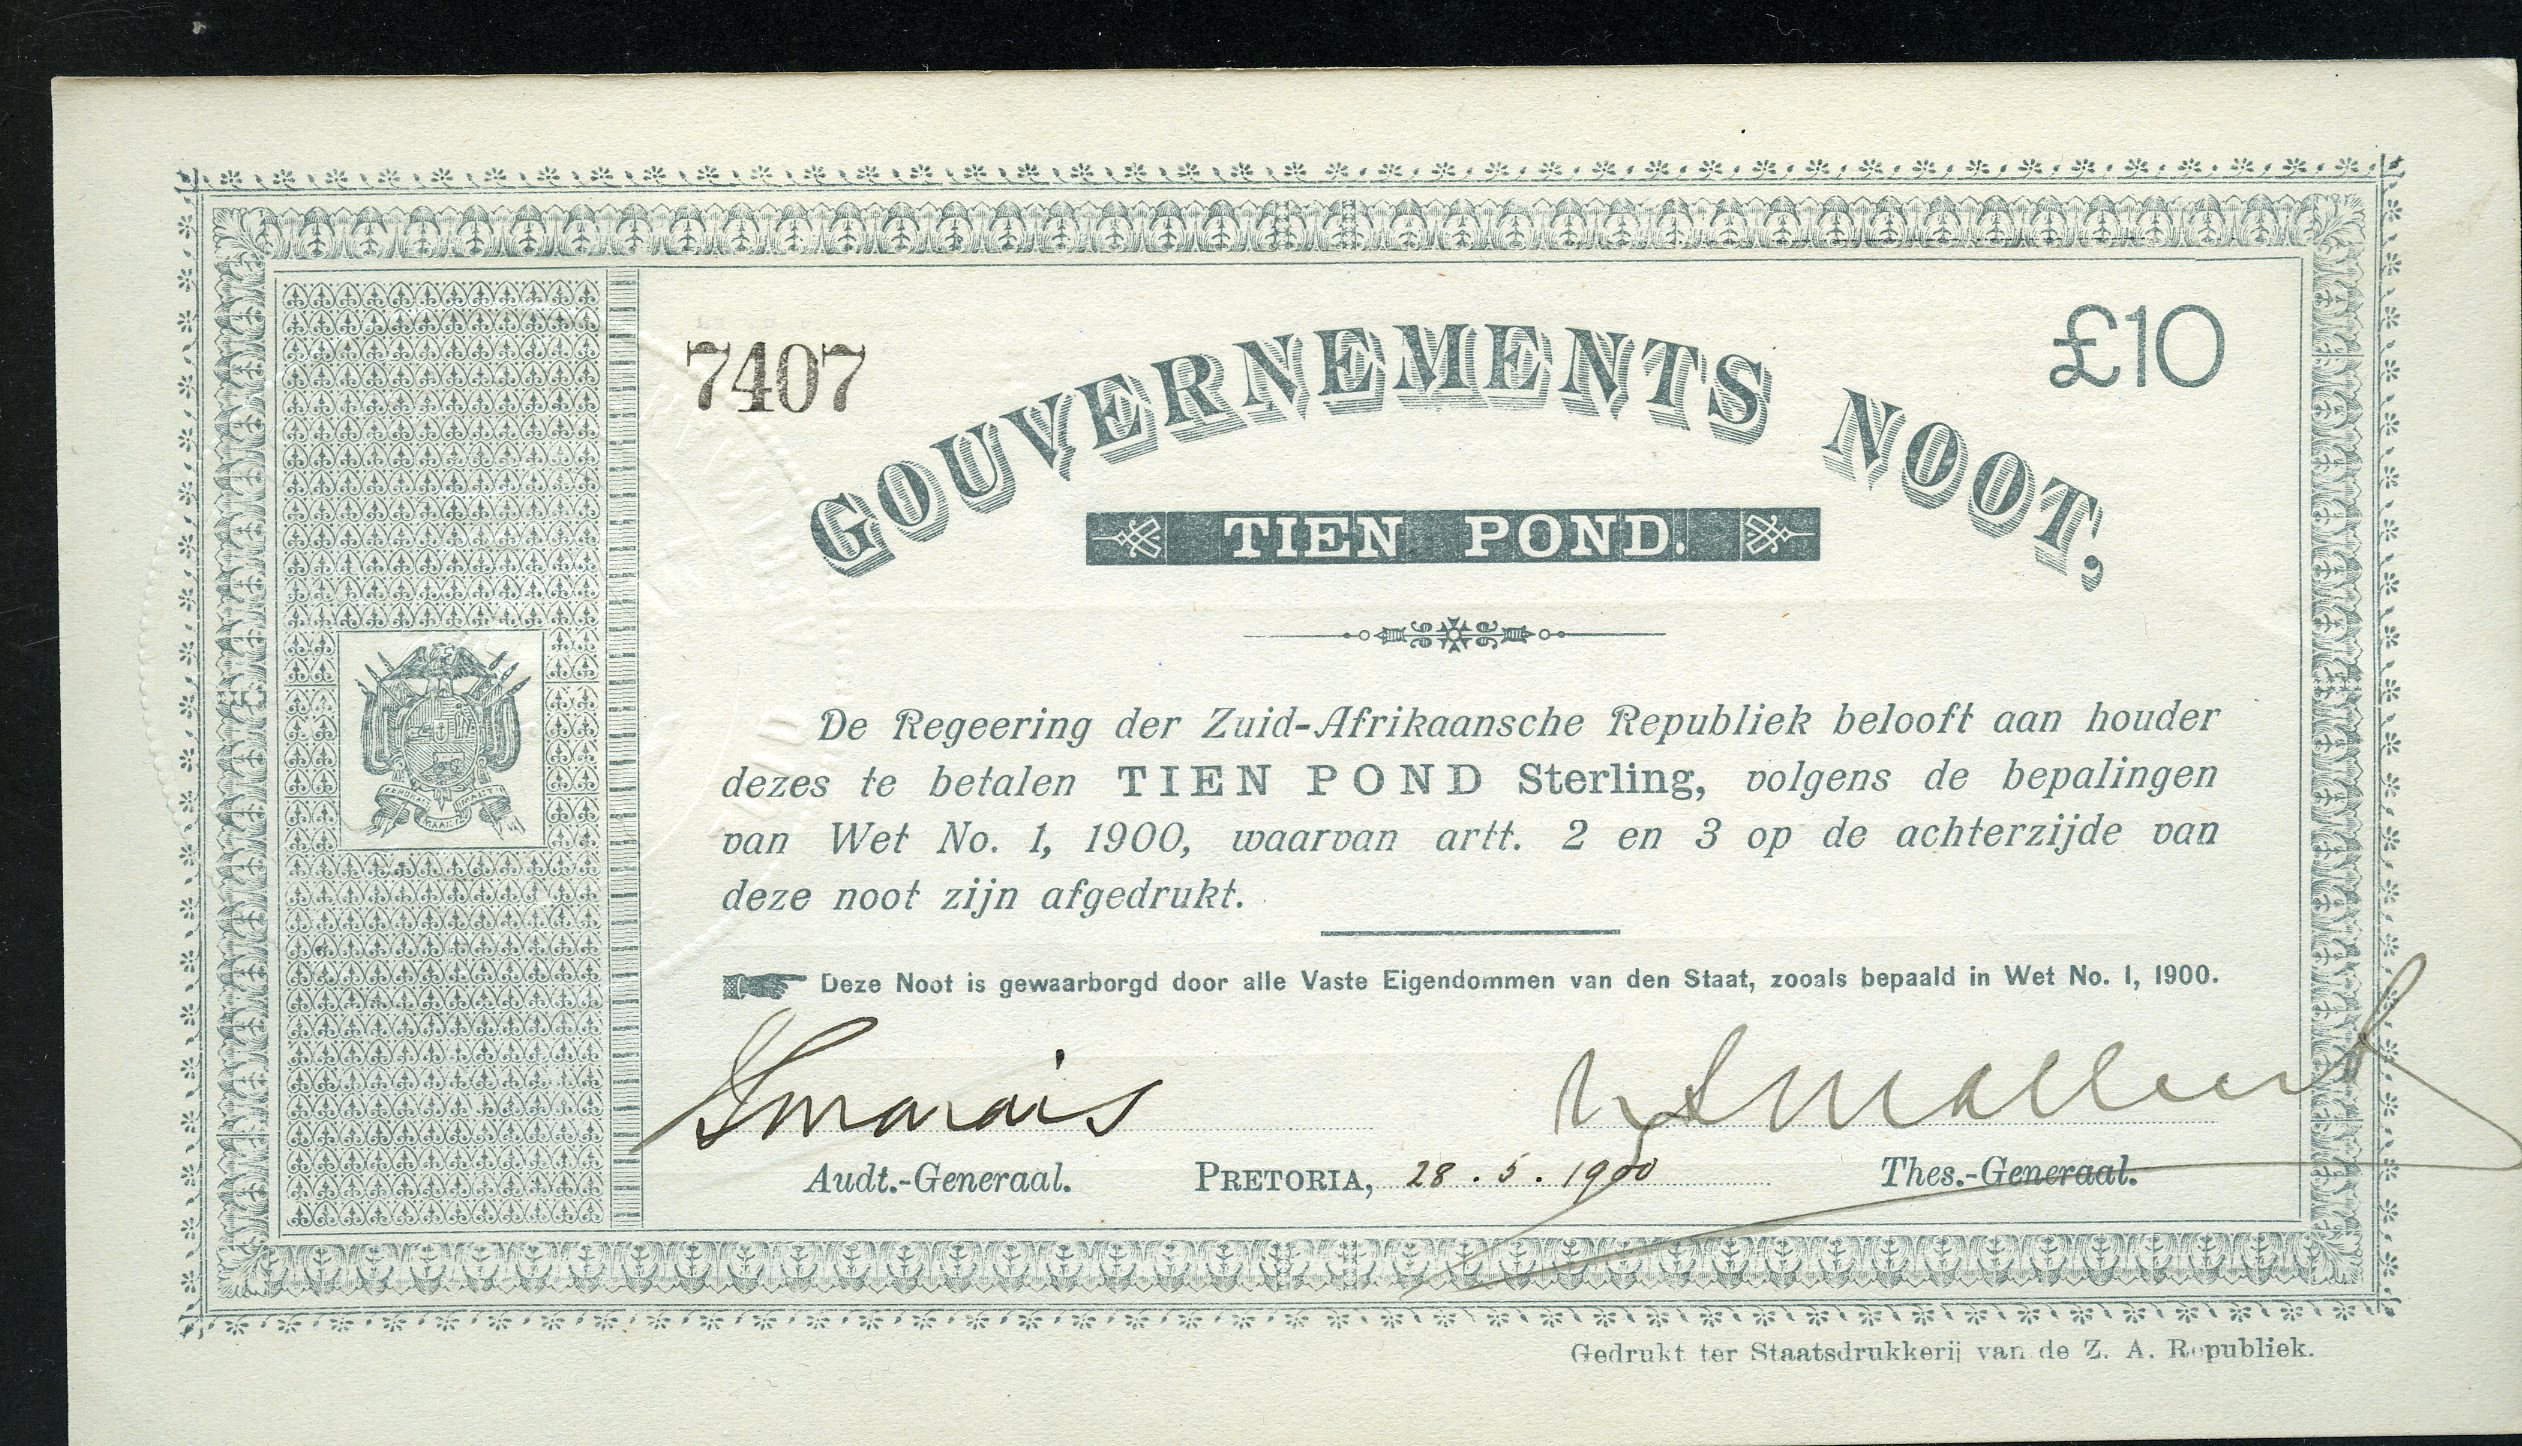 7407
£10
GOUVERNEMENTS NOOT,
TIEN POND.
De Regeering der Zuid-Afrikaansche Republiek belooft aan houder
dezes te betalen TIEN POND Sterling, volgens de bepalingen
van Wet No. 1, 1900, waarvan artt. 2 en 3 op de achterzijde van
deze noot zijn afgedrukt.
Deze Noot is gewaarborgd door alle Vaste Eigendommen van den Staat, zooals bepaald in Wet No. 1, 1900.
Marais
Audt.-Generaal.
PRETORIA, 28.5.1900
Thes.-Generaal.
Gedrukt ter Staatsdrukkerij van de Z. A. Republiek.